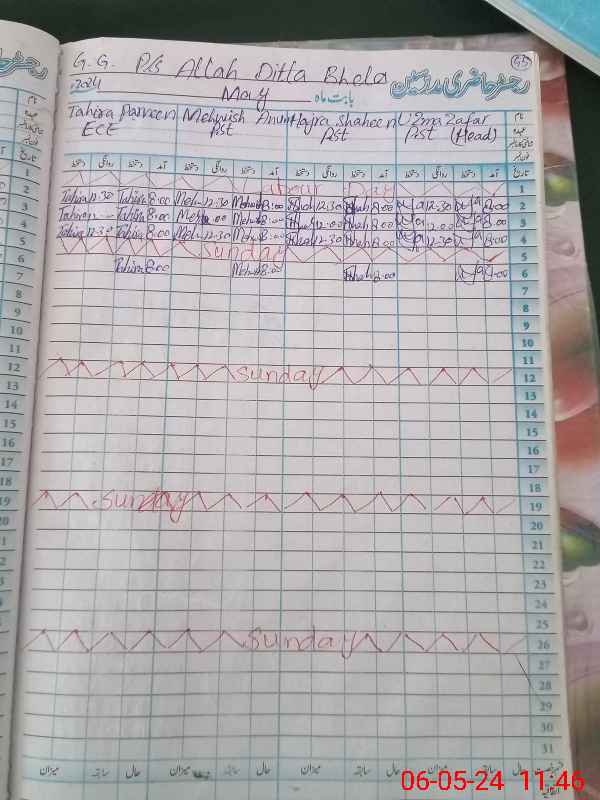 G.G. P/s Allah Ditta Bhola
رجسٹر حاضری مدرسین
2024 May بابت ماہ
Tahira Parveen Mehwish Anum Hajra Shaheen Uzma Zafar
ECE Pst Pst Pst (Head)
نام
عہدہ
تاریخ آمد دستخط روانگی دستخط آمد دستخط روانگی دستخط آمد دستخط روانگی دستخط آمد دستخط روانگی دستخط
1 Labour Day
2 Tahira 12.30 Tahira 8:00 Meh 12.30 Mehwish 8:00 12.30 8:00 12.30 8:00
3 Tahira Tahira 8:00 Meh 12.00 Mehwish 8:00 12.00 8:00 12.00 8:00
4 Tahira 12.30 Tahira 8:00 Meh 12.30 Mehwish 8:00 12.30 8:00 12.30 8:00
5 Sunday
6 Tahira 8:00 Mehwish 8:00 8:00 8:00
7
8
9
10
11
12 Sunday
13
14
15
16
17
18
19 Sunday
20
21
22
23
24
25
26 Sunday
27
28
29
30
31
حال سابقہ میزان حال سابقہ میزان حال سابقہ میزان حال سابقہ میزان
06-05-24 11:46